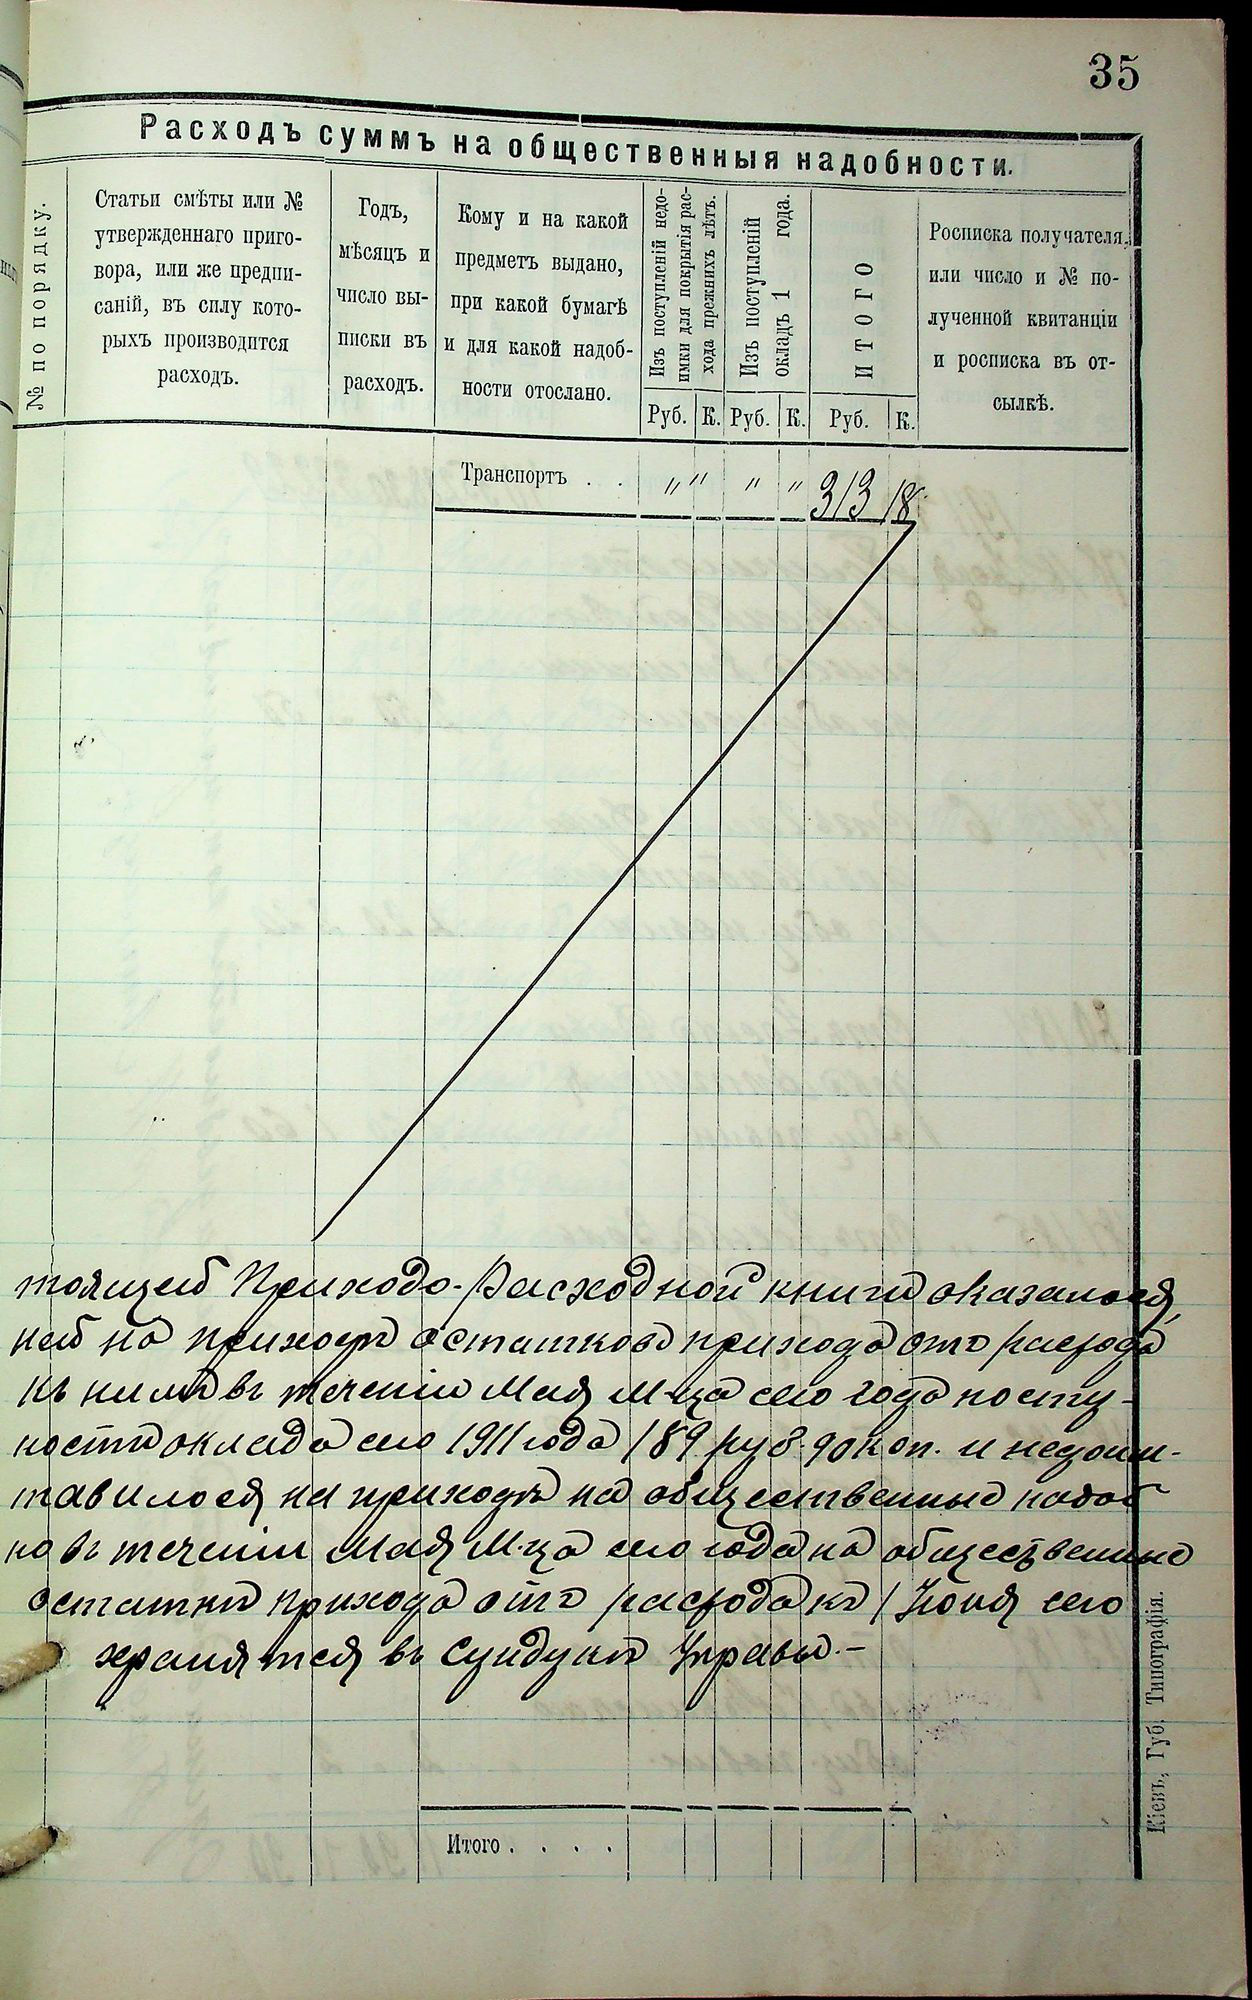 35
Расходъ суммъ на общественныя надобности.
№ по порядку.
Статьи смѣты или №
утвержденнаго приго-
вора, или же предпи-
саній, въ силу кото-
рыхъ производится
расходъ.
Годъ,
мѣсяцъ и
число вы-
писки въ
расходъ.
Кому и на какой
предметъ выдано,
при какой бумагѣ
и для какой надоб-
ности отослано.
Изъ поступленій недо-
имки для покрытія рас-
хода прежнихъ лѣтъ.
Изъ поступленій
окладъ 1 года.
ИТОГО
Росписка получателя,
или число и № по-
лученной квитанціи
и росписка въ от-
сылкѣ.
Руб. К. Руб. К. Руб. К.
Транспортъ . . „ „ „ „ 313 18
тоящей Приходо-Расходной книги оказалося,
ней на приходѣ остатковъ прихода отъ расхода
къ нимъ въ теченіи Мая М-ца сего года посту-
ности оклада сего 1911 года 189 руб. 90 коп. и недоим-
тавилося на приходъ на общественные надоб
но въ теченіи Мая М-ца сего года на общественные
остатки прихода отъ расхода къ 1 Іюня сего
хранятся въ Сундукѣ Управы.-
Итого . . . .
Кіевъ, Губ. Типографія.